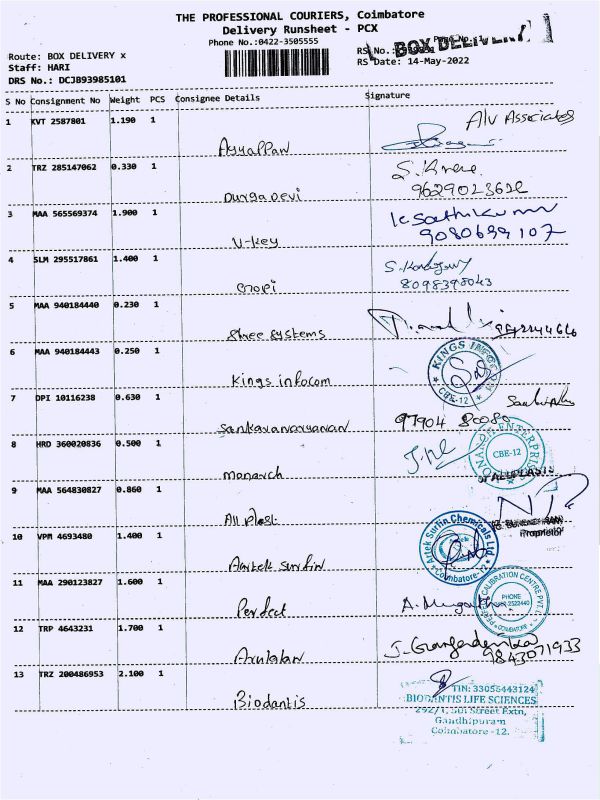 THE PROFESSIONAL COURIERS, Coimbatore
Delivery Runsheet - PCX
Phone No.:0422-3505555
BOX DELIVERY
Route: BOX DELIVERY x
Staff: HARI
DRS No.: DCJ893985101
RS No.:
RS Date: 14-May-2022
S No Consignment No Weight PCS Consignee Details Signature
1 KVT 2587801 1.190 1 Ayyappan A/V Associates
2 TRZ 285147062 0.330 1 Durga Devi
3 MAA 565569374 1.900 1 V-key K. Sathikumar
9080699107
4 SLM 295517861 1.400 1 Gopi
8098398043
5 MAA 940184440 0.230 1 Shree Systems
6 MAA 940184443 0.250 1 Kings infocom KINGS INFOCOM CBE-12
7 DPI 10116238 0.630 1 Sankaranarayanan 97904 80080
8 HRD 360020836 0.500 1 Monarch MONARCH ENTERPRISES CBE-12
9 MAA 564830827 0.860 1 All Plast
Proprietor
10 VPM 4693480 1.400 1 Aartek Surfin Artek Surfin Chemicals Ltd. Coimbatore-12
11 MAA 290123827 1.600 1 Perfect CALIBRATION CENTRE PVT. PHONE 2522440 COIMBATORE
12 TRP 4643231 1.700 1 Arulalan
9843071933
13 TRZ 200486953 2.100 1 Biodantis TIN: 33055443124
BIODANTIS LIFE SCIENCES
292/1, 301 Street Extn,
Gandhipuram
Coimbatore -12.